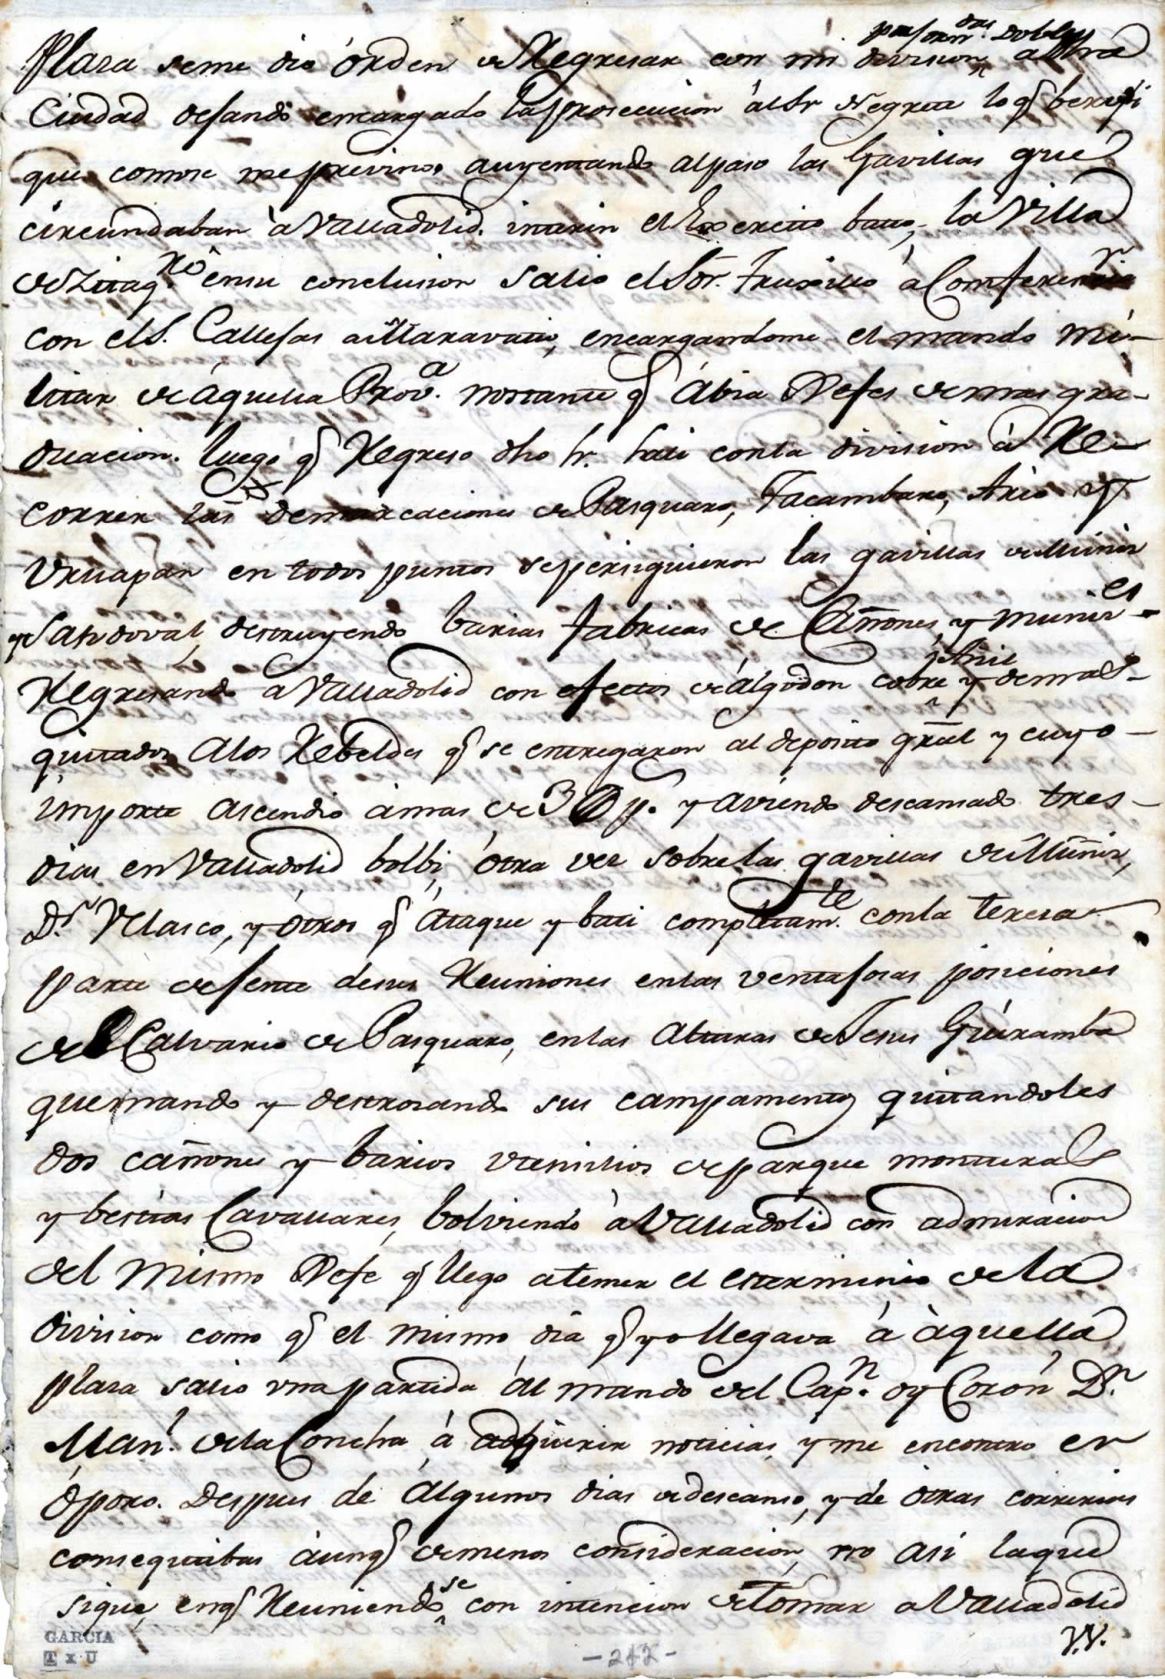 Plasa seme dio órden de Regresar con mi division por jorn.das dobles a dhâ
Ciudad dejando encargado la prosecucion ál Sr Negrete lo q.e berifi
que como se me previno, auyentando al paso las Gavillas que
circundaban à Valladolid, interin el Exercito batio, la Villa
de Zitaq.ro ensu conclusion salio el Sor. Truxillo á Conferenciar
con el S. Callejas a Maravatio, encargandome el mando mi-
litar de áquella Prov.a nostante q.e ábia Jefes de mas gra-
duacion. luego q.e Regreso dho Sr. sali conla division á Re-
correr las demarcaciones de Pasquaro, Tacambaro, Ario y
Uruapan en todos puntos se persiguieron las gavillas de Muñis
y Sandoval, destruyendo barias fabricas de Cañones, y munici.es
Regresando a Valladolid con efectos de álgodon cobre, Añil y demas
quitados alos Rebeldes q.e se entregaron al deposito gral y cuyo
importe ascendio amas de 30 p.s y aviendo descansado tres
dias en Valladolid bolbi, ótra vez sobre las gavillas de Muñis,
D.n Velasco, y ótros q.e átaque y bati completam.te conla tersera
parte de jente desus Reuniones enlas ventajosas posiciones
del Calvario de Pasquaro, enlas alturas de Jesus Giúramba
quemando y destrosando sus campamentos quitandoles
dos cañones y barios utensilios de parque monturas
y bestias Cavallares, bolviendo à Valladolid con admiracion
del mismo Jefe q.e llego atemer el exterminio de la
division como q.e el mismo dia q.e yo llegava á àquella
plasa salio una partida ál mando del Cap.n oy Coron.l D.n
Man.l dela Concha á adquirir noticias, y me encontro en
óporo. Despues de álgunos dias de descanso, y de ótras correrias
consequtibas áunq.e de menos consideracion, no asi laque
sigue, enq.e Reuniendose con intencion de tomar a Valladolid
VV.
GARCIA
T x U
-212-